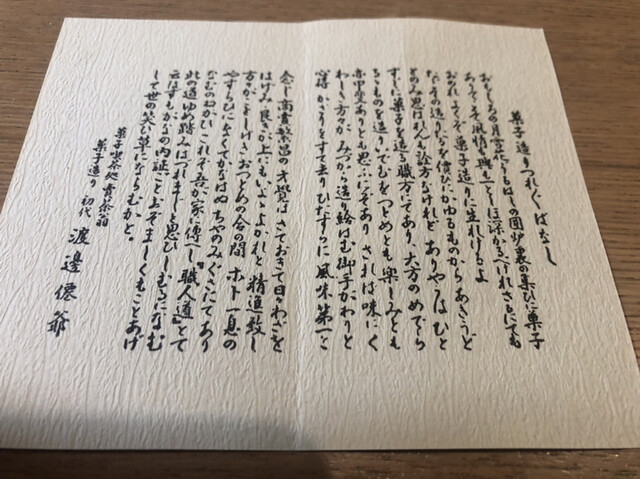 菓子造りつれ〴〵ばなし
おもしろの月雪花、うるはしの囲炉裏の集ひに菓子
あらでこそ風情も興も一しほ深かるべけれ さるにても
おのれようこそ菓子造りに生れけるよ
なりその造りを償ひにかゆるものから あきうど
とのみ思はれんも詮方なけれど ありやうはひと
すじに菓子を造る職方にてあり、大方のめでら
るゝものを造りいでむをつとめとも楽しみとも
赤甲斐ありとも思ふにぞあり されば味にく
わしき方々がみづから造り給はむ御手がわりと
心得 かざりをすて去りひたすらに風味第一と
念じ商賣繁昌の才覚はさておきて日々わざを
はげみ、良きが上にもいよよよかれと精進致し
方々がよしげきおつとめの合間 ホト一息の
やすらひになくてかなはぬちやのみぐさにてあり
なむのねがひ これぞ吾が家に傳へし『職人道』とて
此の道ゆめ踏みはづれまじと思ひしむるになむ
云はずもがなの内証ごと おぞましくもことあげ
して世の笑ひ草にならむかと。
菓子喫茶処 青茶翁
菓子造り 初代 渡邊僊爺